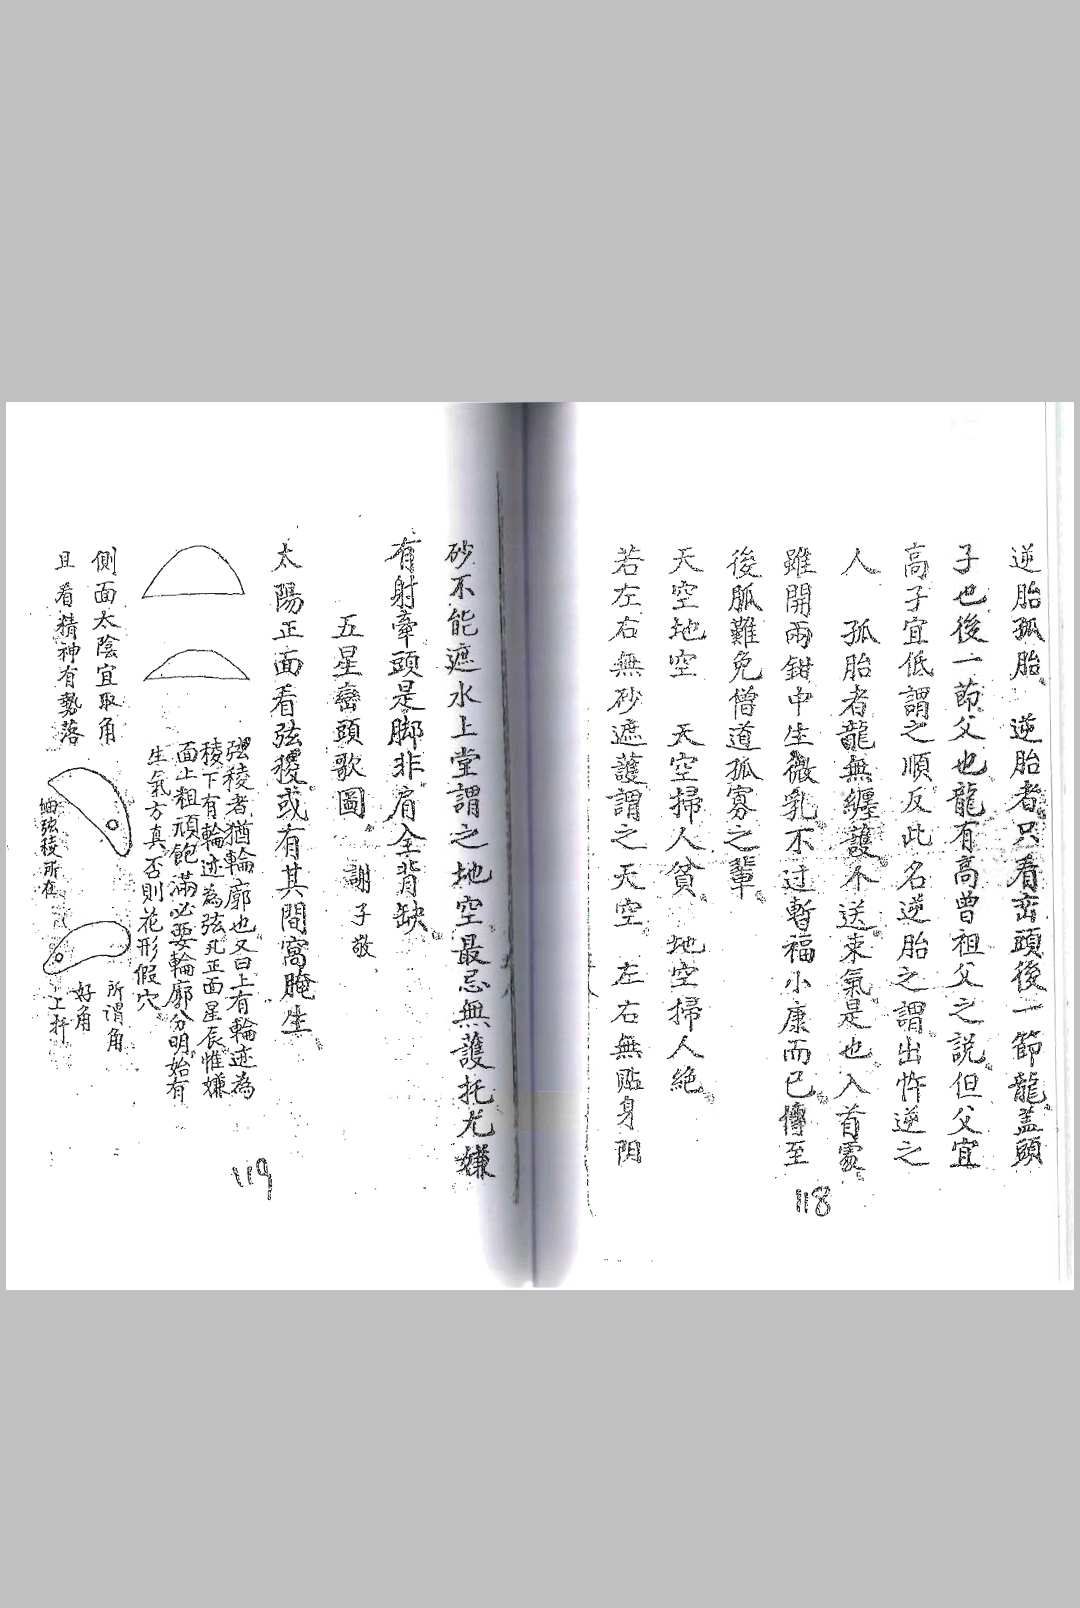 逆胎孤胎 逆胎者只看峦頭後一節龍盖頭
子也後一節父也龍有高曾祖父之説但父宜
高子宜低謂之順反此名逆胎之謂出忤逆之
人 孤胎者龍無纏護不送來氣是也入首處
雖開兩鉗中生微乳不过暫福小康而已傳至
後胍難免僧道孤寡之輩
天空地空 天空掃人貧 地空掃人絶
若左右無砂遮護謂之天空 左右無貼身阴
118
砂不能遮水上堂謂之地空最忌無護托尤嫌
有射牽頭是脚非肩全背缺
五星巒頭歌圖 謝子敬
太陽正面看弦稜或有其間窩腌生
弦稜者猶輪廓也又曰上有輪迹為
稜下有輪迹為弦凡正面星辰惟嫌
面上粗頑飽滿必要輪廓分明始有
生氣方真否則花形假穴
側面太陰宜取角
且看精神有勢落
弦稜所在
所谓角
好角
上扦
119